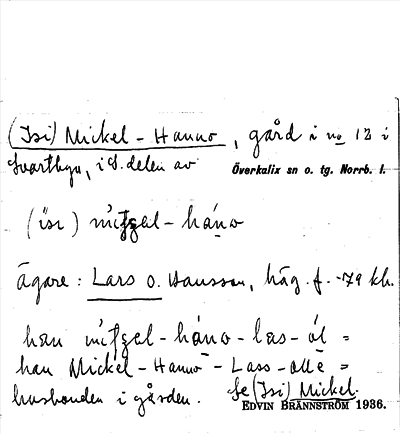 (Isi) Mickel-Hanno, gård i no 13 i
Svartbyn, i S. delen av Överkalix sn o. tg. Norrb. l.
ägare: Lars O. Hansson, häg. f. -79 kh.
han Mickel-Hanno-Lass-Olle =
husbonden i gården. Se (Isi) Mickel.
EDVIN BRÄNNSTRÖM 1936.